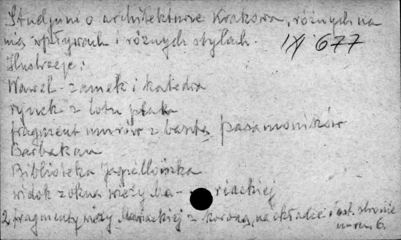 Studjum o architekturze Krakowa, różnych na
nią wpływach i różnych stylach. IX 677
Ilustracje:
Wawel - zamek i katedra
rynek z lotu ptaka
fragment murów z basztą pasamoników
Barbakan
Biblioteka Jagiellońska
widok z okna wieży Ma- -riackiej
2 fragmenty wieży Mariackiej z koroną, na okładce i ost. stronie